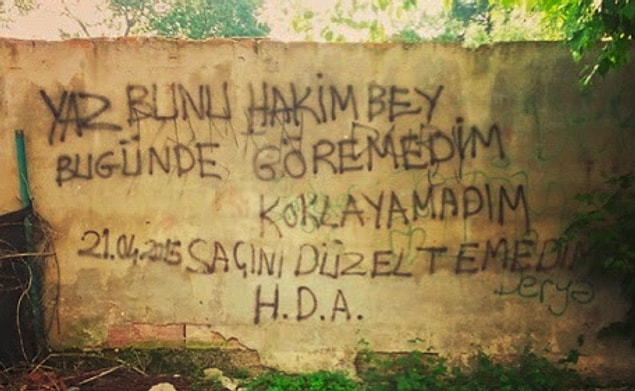 YAZ BUNU HAKİM BEY
BUGÜNDE GÖREMEDİM
KOKLAYAMADIM
21.04.2015 SAÇINI DÜZELTEMEDİM
Derya
H.D.A.